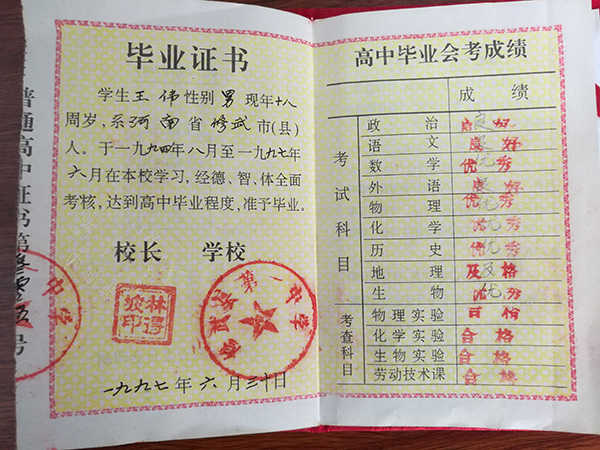 毕业证书
学生王伟性别男现年十八
周岁，系河南省修武市(县)
人。于一九九四年八月至一九九七年
六月在本校学习，经德、智、体全面
考核，达到高中毕业程度，准予毕业。
校长 学校
修武县第一中学
一九九七年六月三十日
普通高中证书第
号
中学
高中毕业会考成绩
成绩
考试科目
政治 良好
语文 良好
数学 优秀
外语 良好
物理 优秀
化学 优秀
历史 优秀
地理 及格
生物 优秀
考查科目
物理实验 合格
化学实验 合格
生物实验 合格
劳动技术课 合格